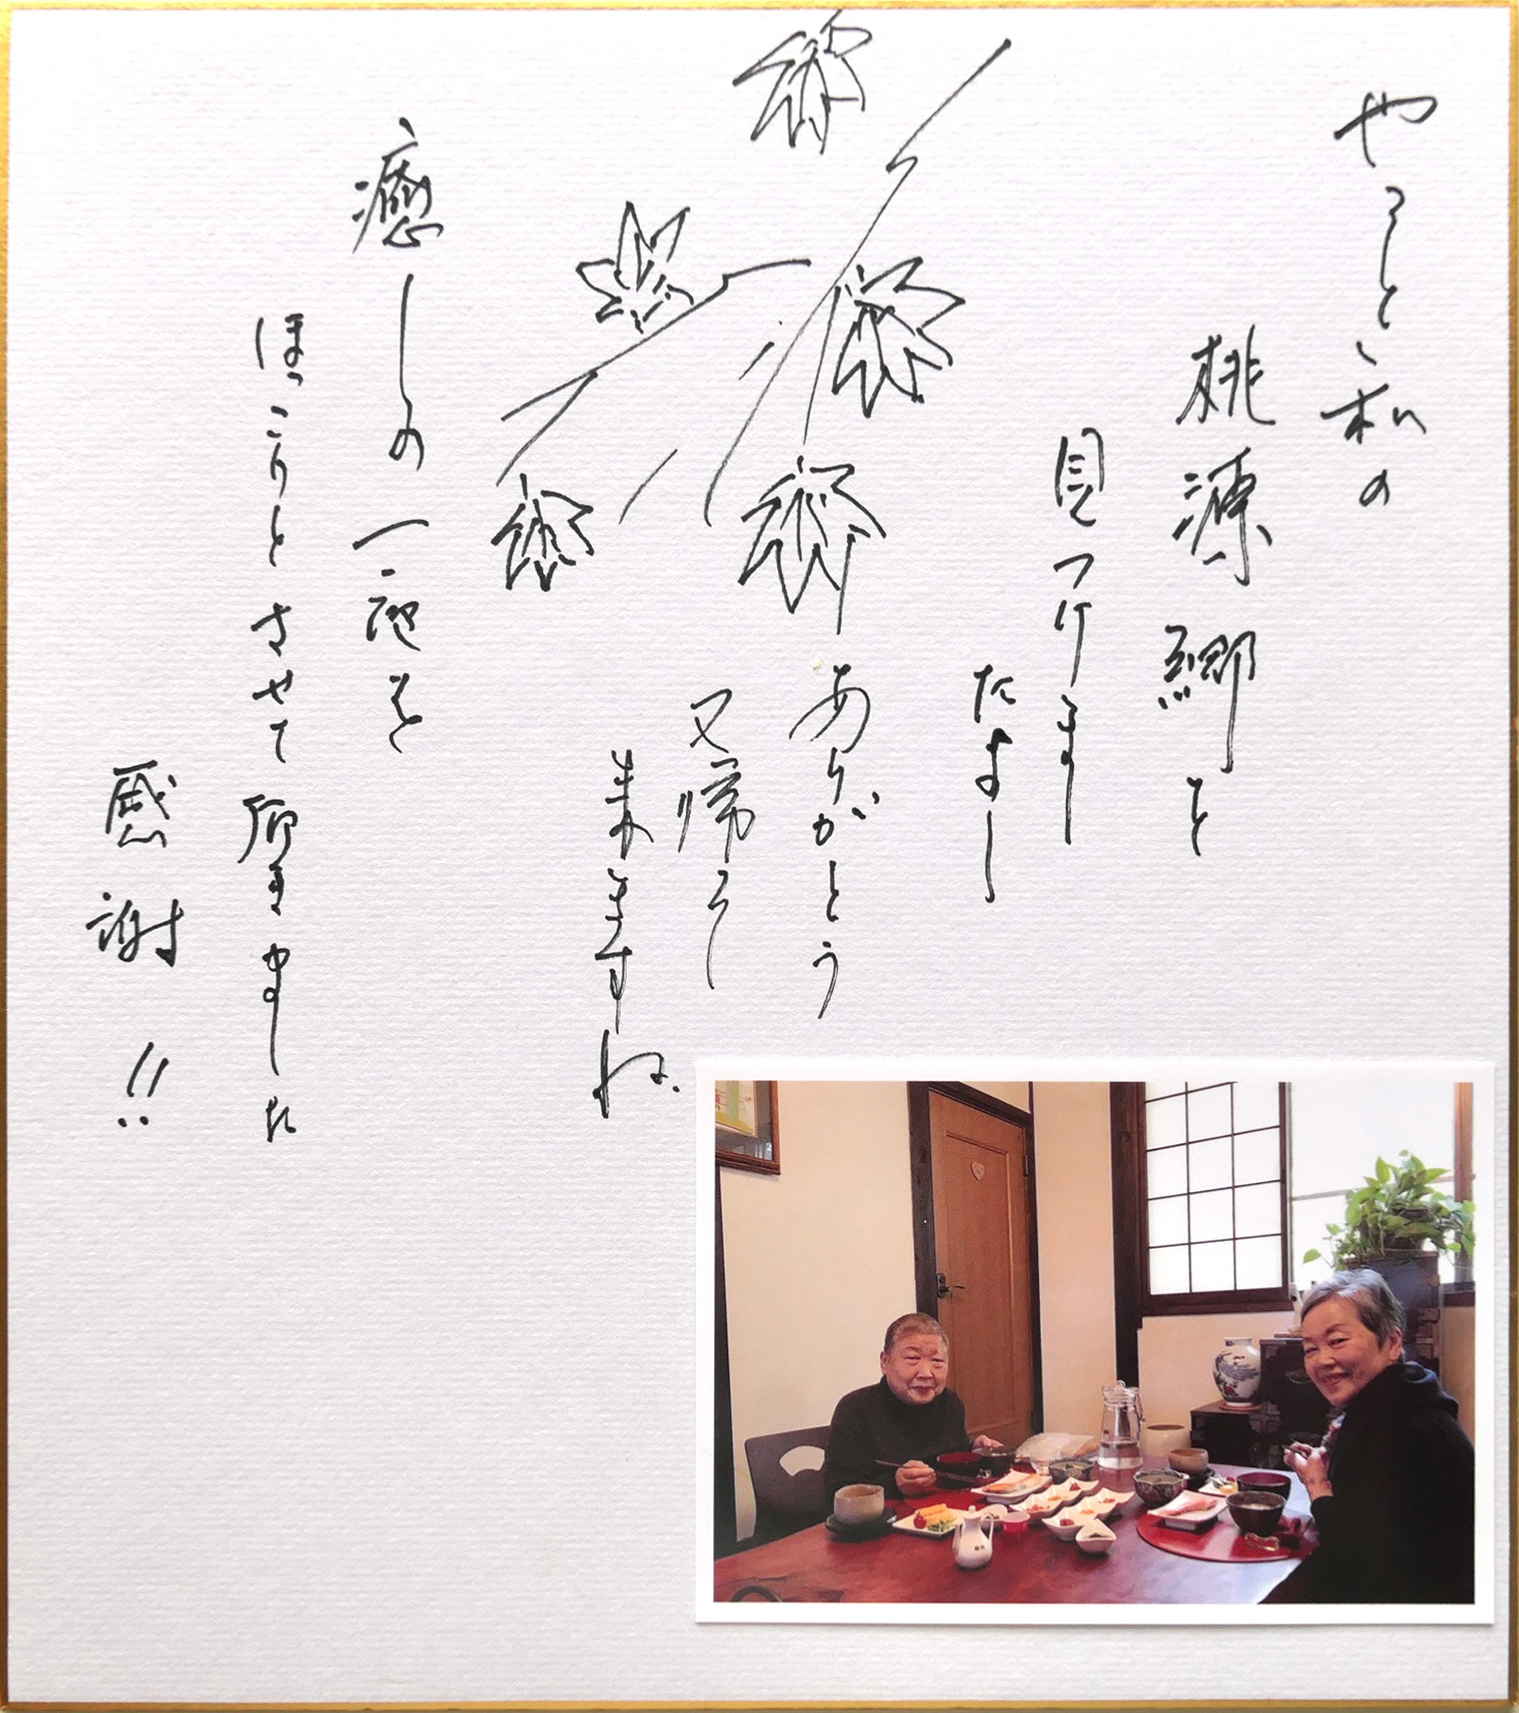 やっと、私の
桃源郷を
見つけまし
たよー
ありがとう
又帰って
来ますね.
癒しの一夜を
ほっこりとさせて頂きました
感謝!!